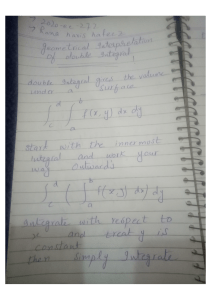 Geometrical Interpretation
of double Integral
double Integral gives the volume
under a surface
∫_c^d ∫_a^b f(x,y) dx dy
start with the innermost
integral and work your
way outwards
∫_c^d ( ∫_a^b f(x,y) dx ) dy
Integrate with respect to
x and treat y is
constant
then simply Integrate